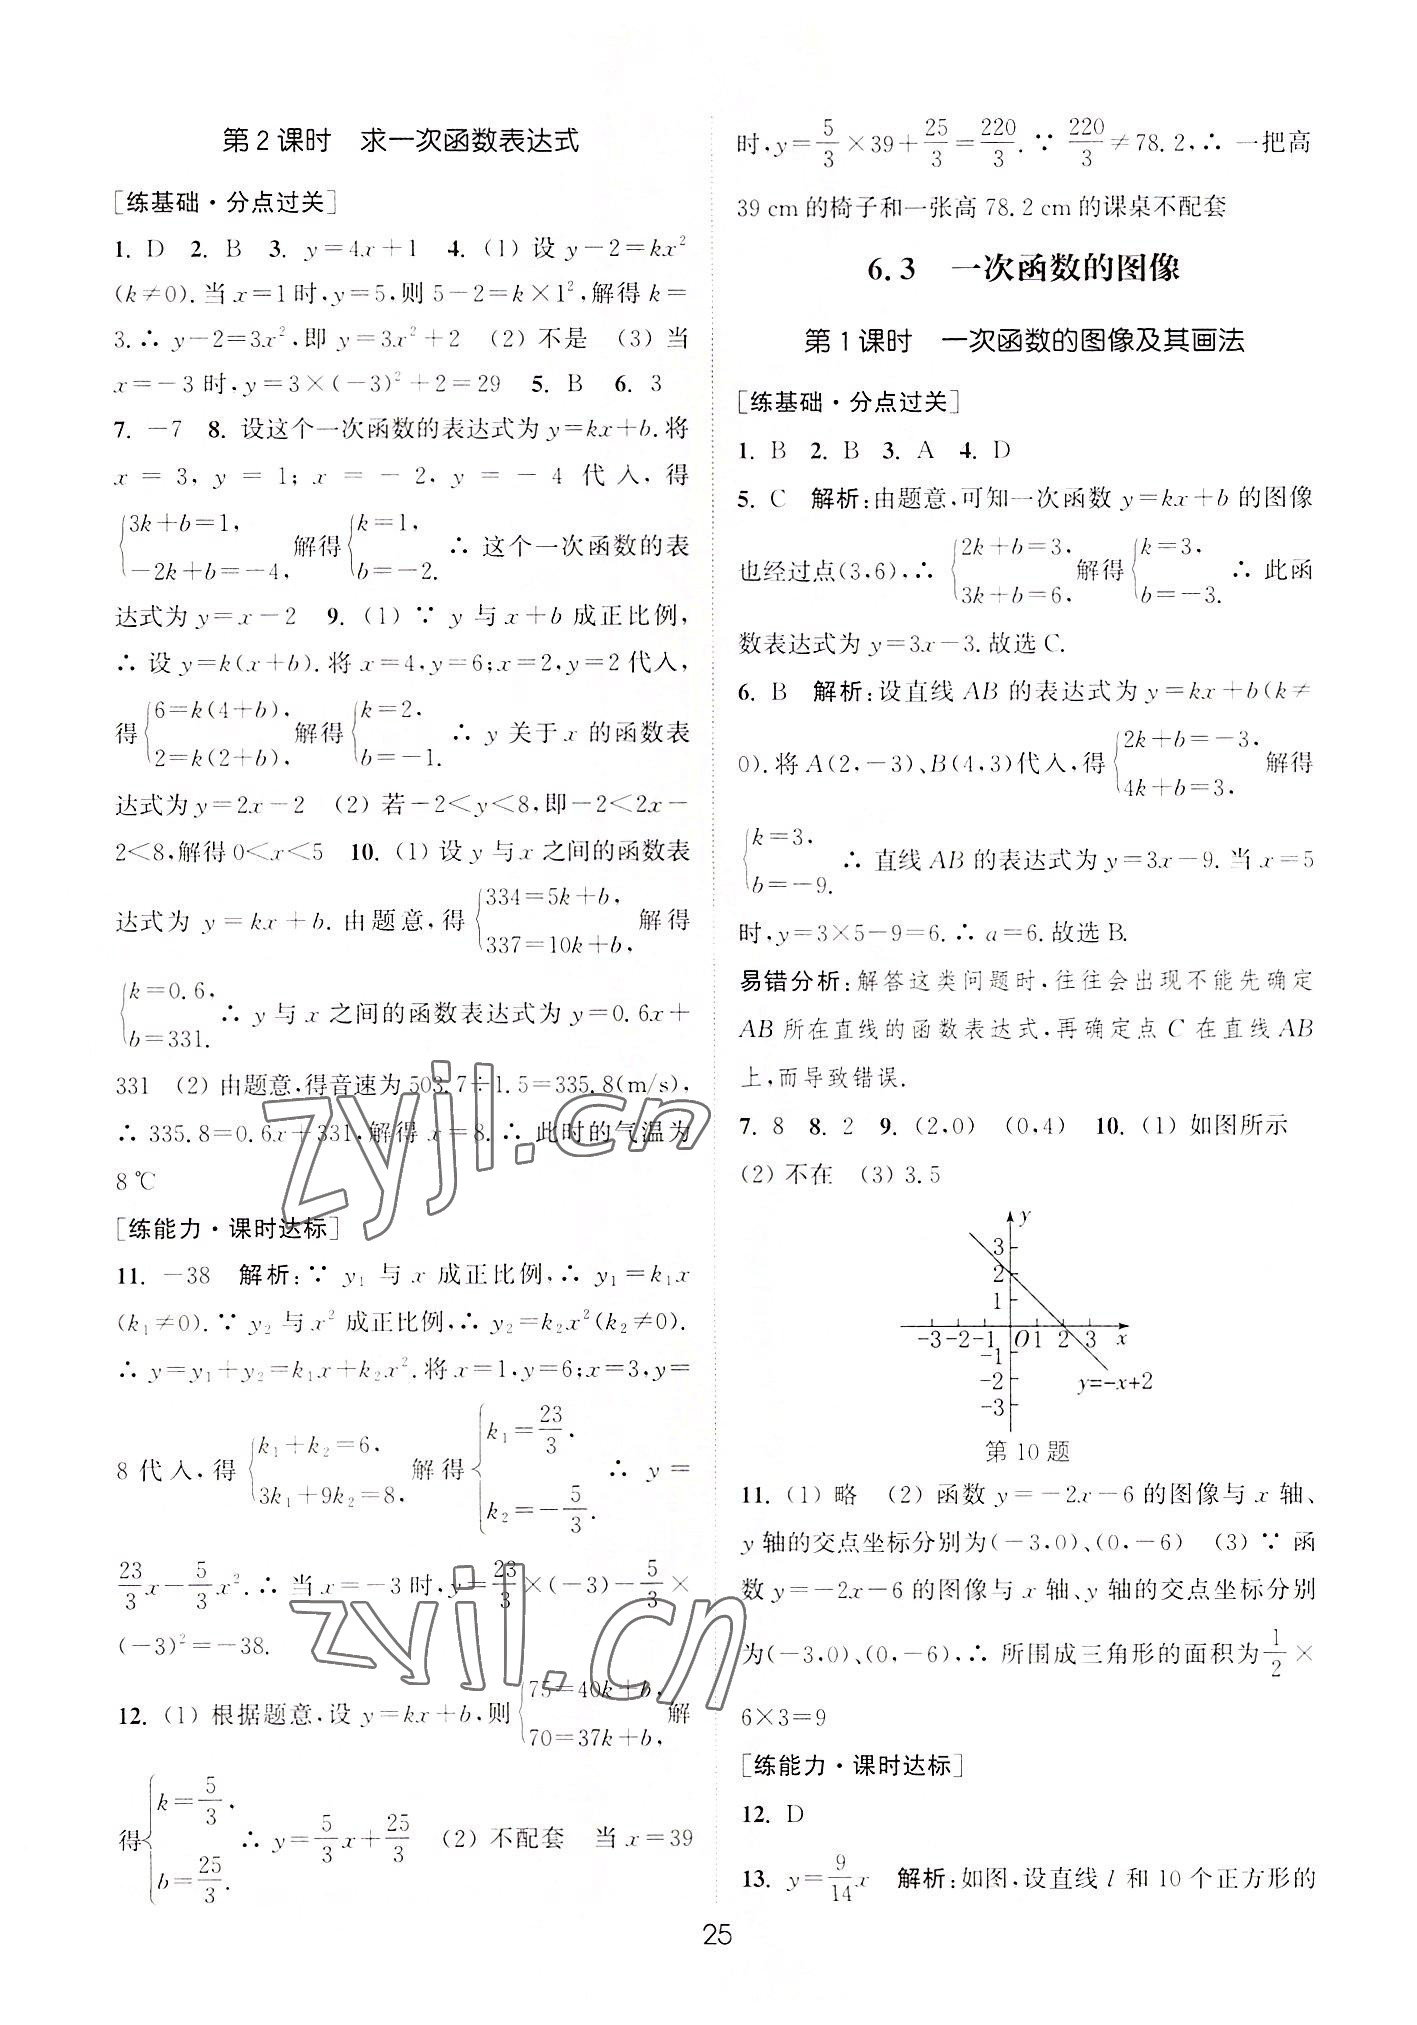 第2课时　求一次函数表达式
[练基础·分点过关]
1. D　2. B　3. y=4x+1　4. (1) 设 y-2=kx²
(k≠0).当x=1时,y=5,则5-2=k×1²,解得k=
3.∴ y-2=3x²,即 y=3x²+2　(2) 不是　(3) 当
x=-3时,y=3×(-3)²+2=29　5. B　6. 3
7. -7　8. 设这个一次函数的表达式为y=kx+b.将
x = 3, y = 1; x = - 2, y = - 4 代入,得
{3k+b=1, -2k+b=-4, 解得 {k=1, b=-2. ∴ 这个一次函数的表
达式为 y=x-2　9. (1) ∵ y 与 x+b 成正比例,
∴ 设 y=k(x+b).将 x=4,y=6;x=2,y=2代入,
得 {6=k(4+b), 2=k(2+b), 解得 {k=2, b=-1. ∴ y 关于x 的函数表
达式为 y=2x-2　(2) 若-2<y<8,即-2<2x-
2<8,解得0<x<5　10. (1) 设 y 与x 之间的函数表
达式为 y=kx+b.由题意,得 {334=5k+b, 337=10k+b, 解得
{k=0.6, b=331. ∴ y 与 x 之间的函数表达式为y=0.6x+
331　(2) 由题意,得音速为503.7÷1.5=335.8(m/s),
∴ 335.8=0.6x+331,解得 x=8.∴ 此时的气温为
8 ℃
[练能力·课时达标]
11. -38　解析:∵ y₁ 与 x 成正比例,∴ y₁=k₁x
(k₁≠0).∵ y₂ 与 x² 成正比例,∴ y₂=k₂x²(k₂≠0).
∴ y=y₁+y₂=k₁x+k₂x².将x=1,y=6;x=3,y=
8代入,得 {k₁+k₂=6, 3k₁+9k₂=8, 解得 {k₁=23/3, k₂=-5/3. ∴ y=
23/3x-5/3x².∴ 当x=-3时,y=23/3×(-3)-5/3×
(-3)²=-38.
12. (1) 根据题意,设 y=kx+b,则 {75=40k+b, 70=37k+b, 解
得 {k=5/3, b=25/3. ∴ y=5/3x+25/3　(2) 不配套　当x=39
时,y=5/3×39+25/3=220/3.∵ 220/3≠78.2,∴ 一把高
39 cm的椅子和一张高78.2 cm的课桌不配套
6.3　一次函数的图像
第1课时　一次函数的图像及其画法
[练基础·分点过关]
1. B　2. B　3. A　4. D
5. C　解析:由题意,可知一次函数 y=kx+b 的图像
也经过点(3,6),∴ {2k+b=3, 3k+b=6, 解得 {k=3, b=-3. ∴ 此函
数表达式为 y=3x-3.故选C.
6. B　解析:设直线 AB 的表达式为 y=kx+b(k≠
0).将A(2,-3)、B(4,3)代入,得 {2k+b=-3, 4k+b=3, 解得
{k=3, b=-9. ∴ 直线AB 的表达式为y=3x-9. 当 x=5
时,y=3×5-9=6.∴ a=6.故选B.
易错分析:解答这类问题时,往往会出现不能先确定
AB 所在直线的函数表达式,再确定点 C 在直线 AB
上,而导致错误.
7. 8　8. 2　9. (2,0)　(0,4)　10. (1) 如图所示
(2) 不在　(3) 3.5
y
3
2
1
-3 -2 -1 O 1 2 3 x
-1
-2
-3
y=-x+2
第10题
11. (1) 略　(2) 函数 y=-2x-6 的图像与 x 轴、
y 轴的交点坐标分别为(-3,0)、(0,-6)　(3) ∵ 函
数 y=-2x-6 的图像与 x 轴、y 轴的交点坐标分别
为(-3,0)、(0,-6),∴ 所围成三角形的面积为1/2×
6×3=9
[练能力·课时达标]
12. D
13. y=9/14x　解析:如图,设直线 l 和10个正方形的
25
zyjl.cn
zyjl.cn